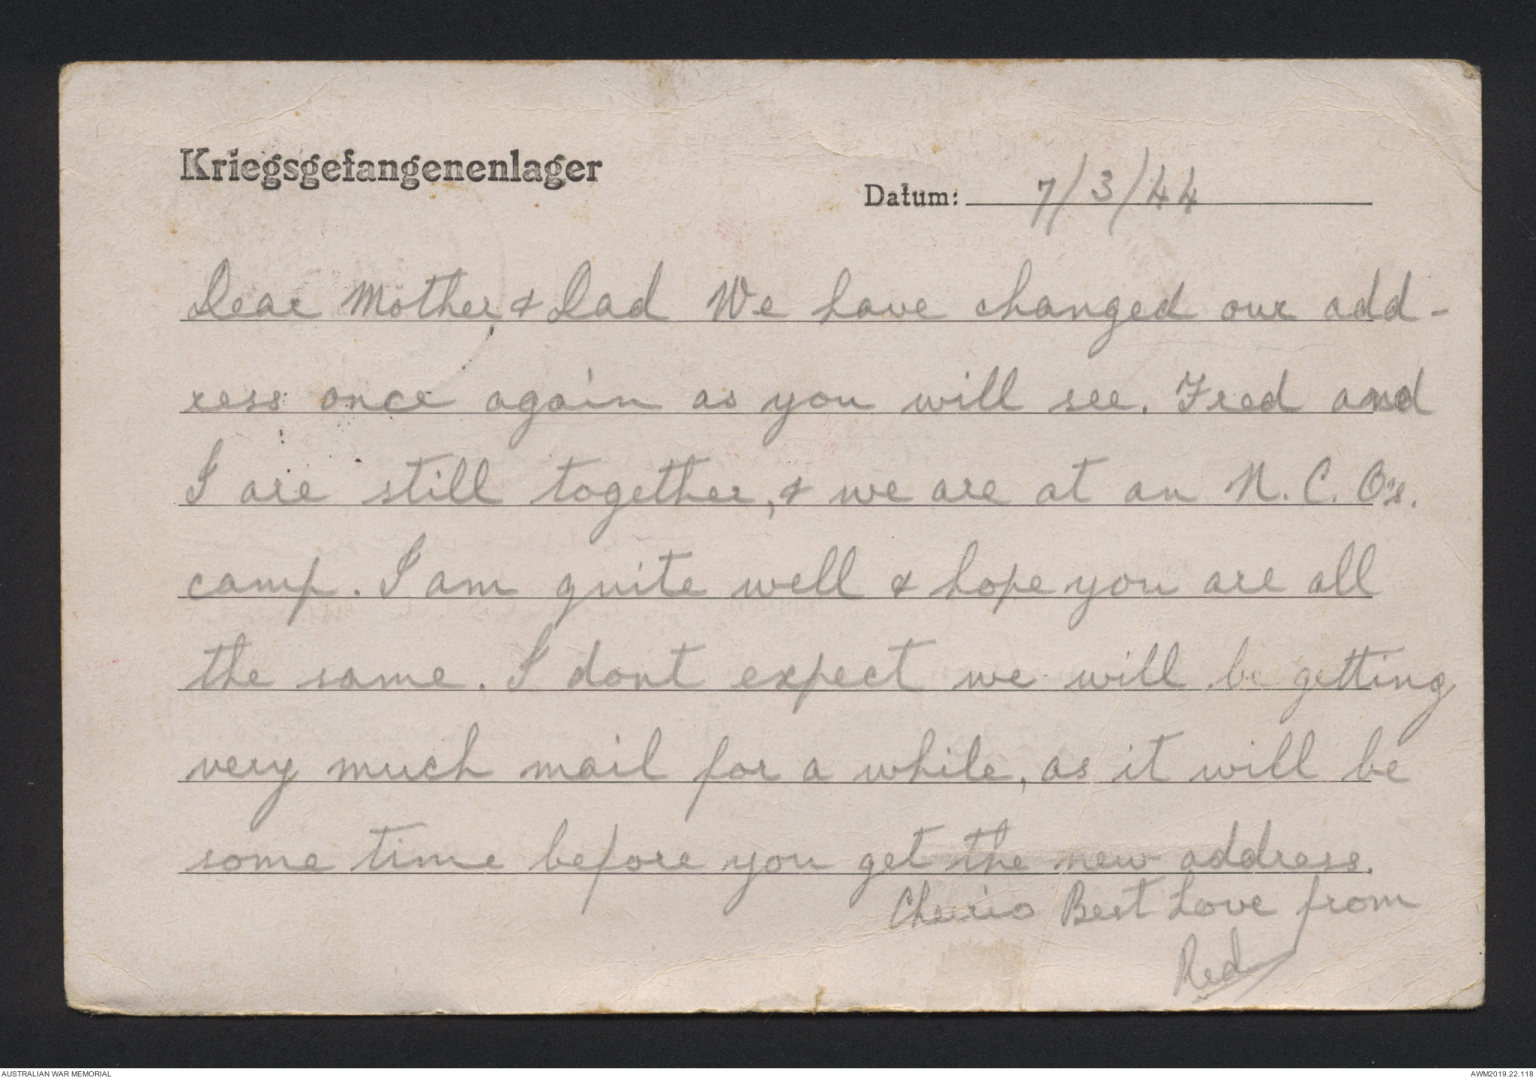 Kriegsgefangenenlager
Datum: 7/3/44
Dear Mother & Dad We have changed our add-
ress once again as you will see. Fred and
I are still together, & we are at an N. C. O's.
camp. I am quite well & hope you are all
the same. I dont expect we will be getting
very much mail for a while, as it will be
some time before you get the new address.
Cheerio Best Love from
Red
AUSTRALIAN WAR MEMORIAL
AWM2019.22.118